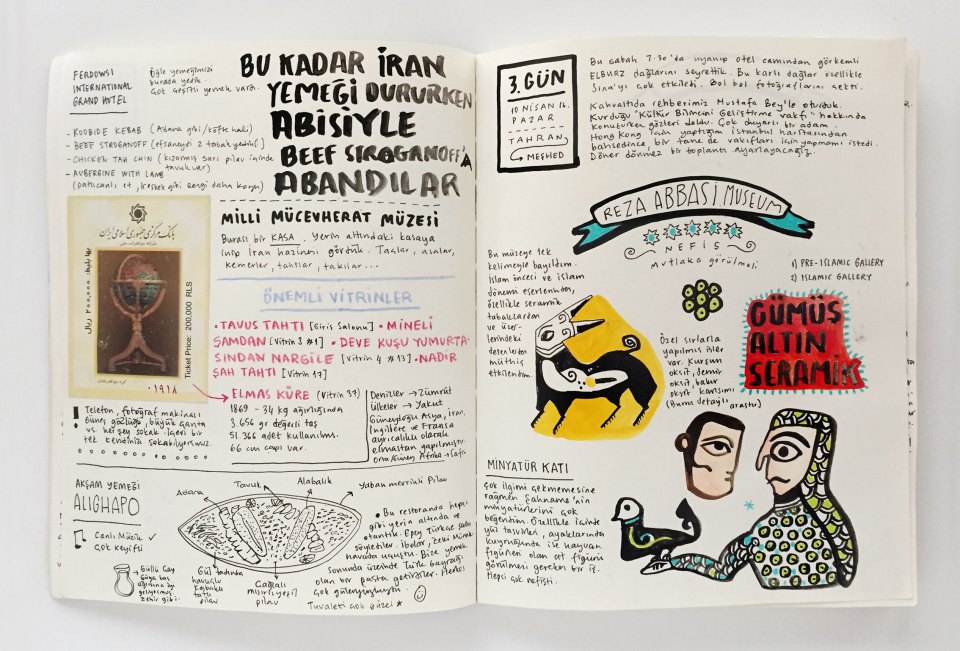 FERDOWSI
INTERNATIONAL
GRAND HOTEL
Öğle yemeğimizi
burada yedik.
Çok çeşitli yemek vardı.
- KOOBIDE KEBAB (Adana gibi/köfte hali)
- BEEF STROGANOFF (efsaneydi 2 tabak yedik)
- CHICKEN TAH CHIN (kızarmış sarı pilav içinde
tavuk var)
- AUBERGINE WITH LAMB
(patlıcanlı et, keşkek gibi rengi daha koyu)
BU KADAR İRAN
YEMEĞİ DURURKEN
ABİSİYLE
BEEF STROGANOFF'A
ABANDILAR
بانک مرکزی جمهوری اسلامی ایران
Ticket Price: 200.000 RLS
MİLLİ MÜCEVHERAT MÜZESİ
Burası bir KASA. Yerin altındaki kasaya
inip İran hazinesi gördük. Taçlar, asalar,
kemerler, tahtlar, takılar...
ÖNEMLİ VİTRİNLER
• TAVUS TAHTI [Giriş Salonu] • MİNELİ
ŞAMDAN [Vitrin 3 #1] • DEVE KUŞU YUMURTA-
SINDAN NARGİLE [Vitrin 4 #13] • NADİR
ŞAH TAHTI [Vitrin 17]
ELMAS KÜRE (Vitrin 37)
1869 - 34 kg ağırlığında
3.656 gr değerli taş
51.366 adet kullanılmış.
66 cm çapı var.
Denizler → Zümrüt
Ülkeler → Yakut
Güneydoğu Asya, İran,
İngiltere ve Fransa
ayrıcalıklı olarak
elmastan yapılmıştır.
Orta/Güney Afrika → Safir
! Telefon, fotoğraf makinası
güneş gözlüğü, büyük çanta
vs her şey sokak. İçeri bir
tek kendinizi sokabiliyorsunuz.
AKŞAM YEMEĞİ
ALIGHAPO
Canlı Müzik ✓
Çok keyifli
Adana
Tavuk
Alabalık
Yaban mersinli Pilav
Gül tadında
havuçlu
kabaklı
tatlı
pilav
Çağlalı
mısırlı yeşil
pilav
• Bu restoranda hepsi
gibi yerin altında ve
otantik. Epey Türkçe şarkı
söylediler. İbolar, Zeki Müren
havada uçuştu. Bize yemek
sonunda üzerinde Türk bayrağı
olan bir pasta getirdiler. Herkes
çok güleryüzlüydü.
Tuvaleti çok güzel *
3. GÜN
10 NİSAN 16.
PAZAR
TAHRAN
MEŞHED
Bu sabah 7.30'da uyanıp otel camından görkemli
ELBURZ dağlarını seyrettik. Bu karlı dağlar özellikle
Sina'yı çok etkiledi. Bol bol fotoğraflarını çekti.
Kahvaltıda rehberimiz Mustafa Bey'le oturduk.
Kurduğu "Kültür Bilincini Geliştirme Vakfı" hakkında
konuşurken gözleri doldu. Çok duyarlı bir adam.
Hong Kong için yaptığım İstanbul haritasından
bahsedince, bir tane de vakıfları için yapmamı istedi.
Döner dönmez bir toplantı ayarlayacağız.
REZA ABBASİ MUSEUM
NEFİS
Mutlaka görülmeli
Bu müzeye tek
kelimeyle bayıldım.
İslam öncesi ve İslam
dönemi eserlerinden,
özellikle seramik
tabaklardan
ve üzer-
lerindeki
desenlerden
müthiş
etkilendim.
1) PRE-ISLAMIC GALLERY
2) ISLAMIC GALLERY
GÜMÜŞ
ALTIN
SERAMİK
Özel sırlarla
yapılmış işler
var. Kurşun
oksit, demir
oksit, bakır
oksit karışımı
(Bunu detaylı araştır)
MİNYATÜR KATI
Çok ilgimi çekmemesine
rağmen Şahname'nin
minyatürlerini çok
beğendim. Özellikle içinde
yüz tasvirleri, ayaklarında
kuyruğunda ise hayvan
figürleri olan at figürü
görülmesi gereken bir iş.
Hepsi çok nefisti.